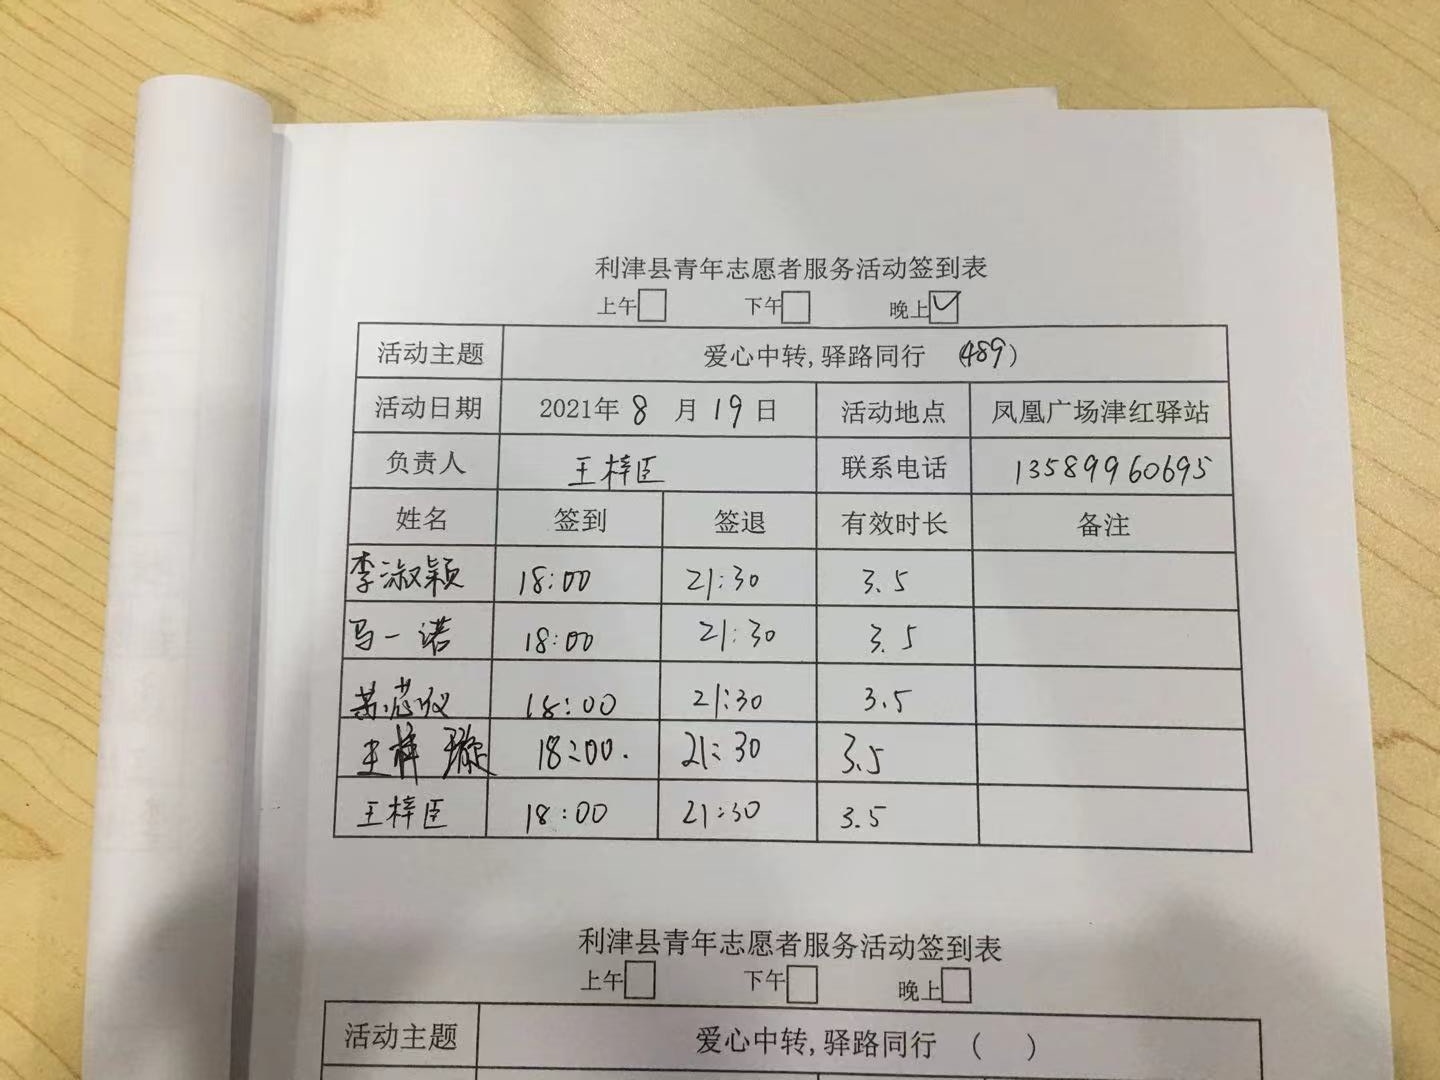 利津县青年志愿者服务活动签到表
上午 下午 晚上✓
活动主题 爱心中转,驿路同行 (489)
活动日期 2021年 8 月 19 日 活动地点 凤凰广场津红驿站
负责人 王梓臣 联系电话 13589960695
姓名 签到 签退 有效时长 备注
李淑颖 18:00 21:30 3.5
马一诺 18:00 21:30 3.5
18:00 21:30 3.5
王梓璇 18:00. 21:30 3.5
王梓臣 18:00 21:30 3.5
利津县青年志愿者服务活动签到表
上午 下午 晚上
活动主题 爱心中转,驿路同行 ( )